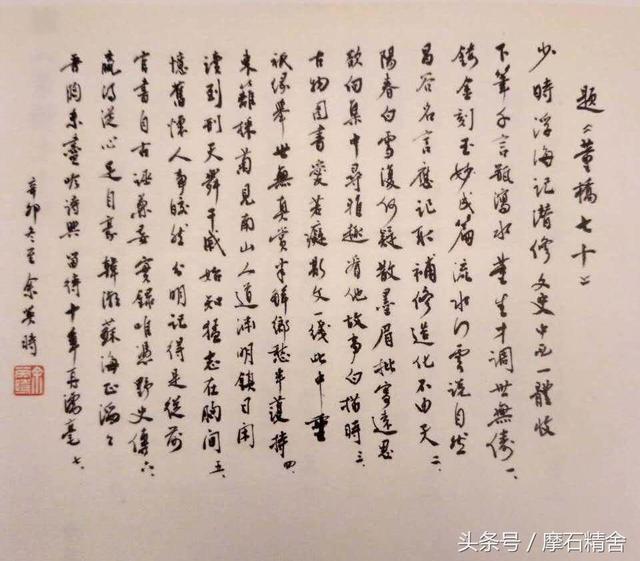 題《董橋七十》
少時浮海記潛修文史中西一體收
下筆千言散瀉水董生才調世無儔 一、
鏤金刻玉妙成篇流水行雲說自然
昌谷名言應記取補修造化不由天 二、
陽春白雪復何疑散墨眉批寄遠思
欲向集中尋雅趣看他故事白描時 三、
古物圖書愛若癡斯文一綫此中垂
祇緣舉世無真賞半解鄉愁半護持 四、
東籬採菊見南山人道淵明鎮日閑
讀到刑天舞干戚始知猛志在胸間 五、
憶舊懷人事皎然分明記得是從前
官書自古誣兼妄實錄唯憑野史傳 六、
贏得從心足自豪韓潮蘇海正滔々
吾胸未盡吟詩興留待十年再濡毫 七、
辛卯冬至余英時
头条号 / 摩石精舍